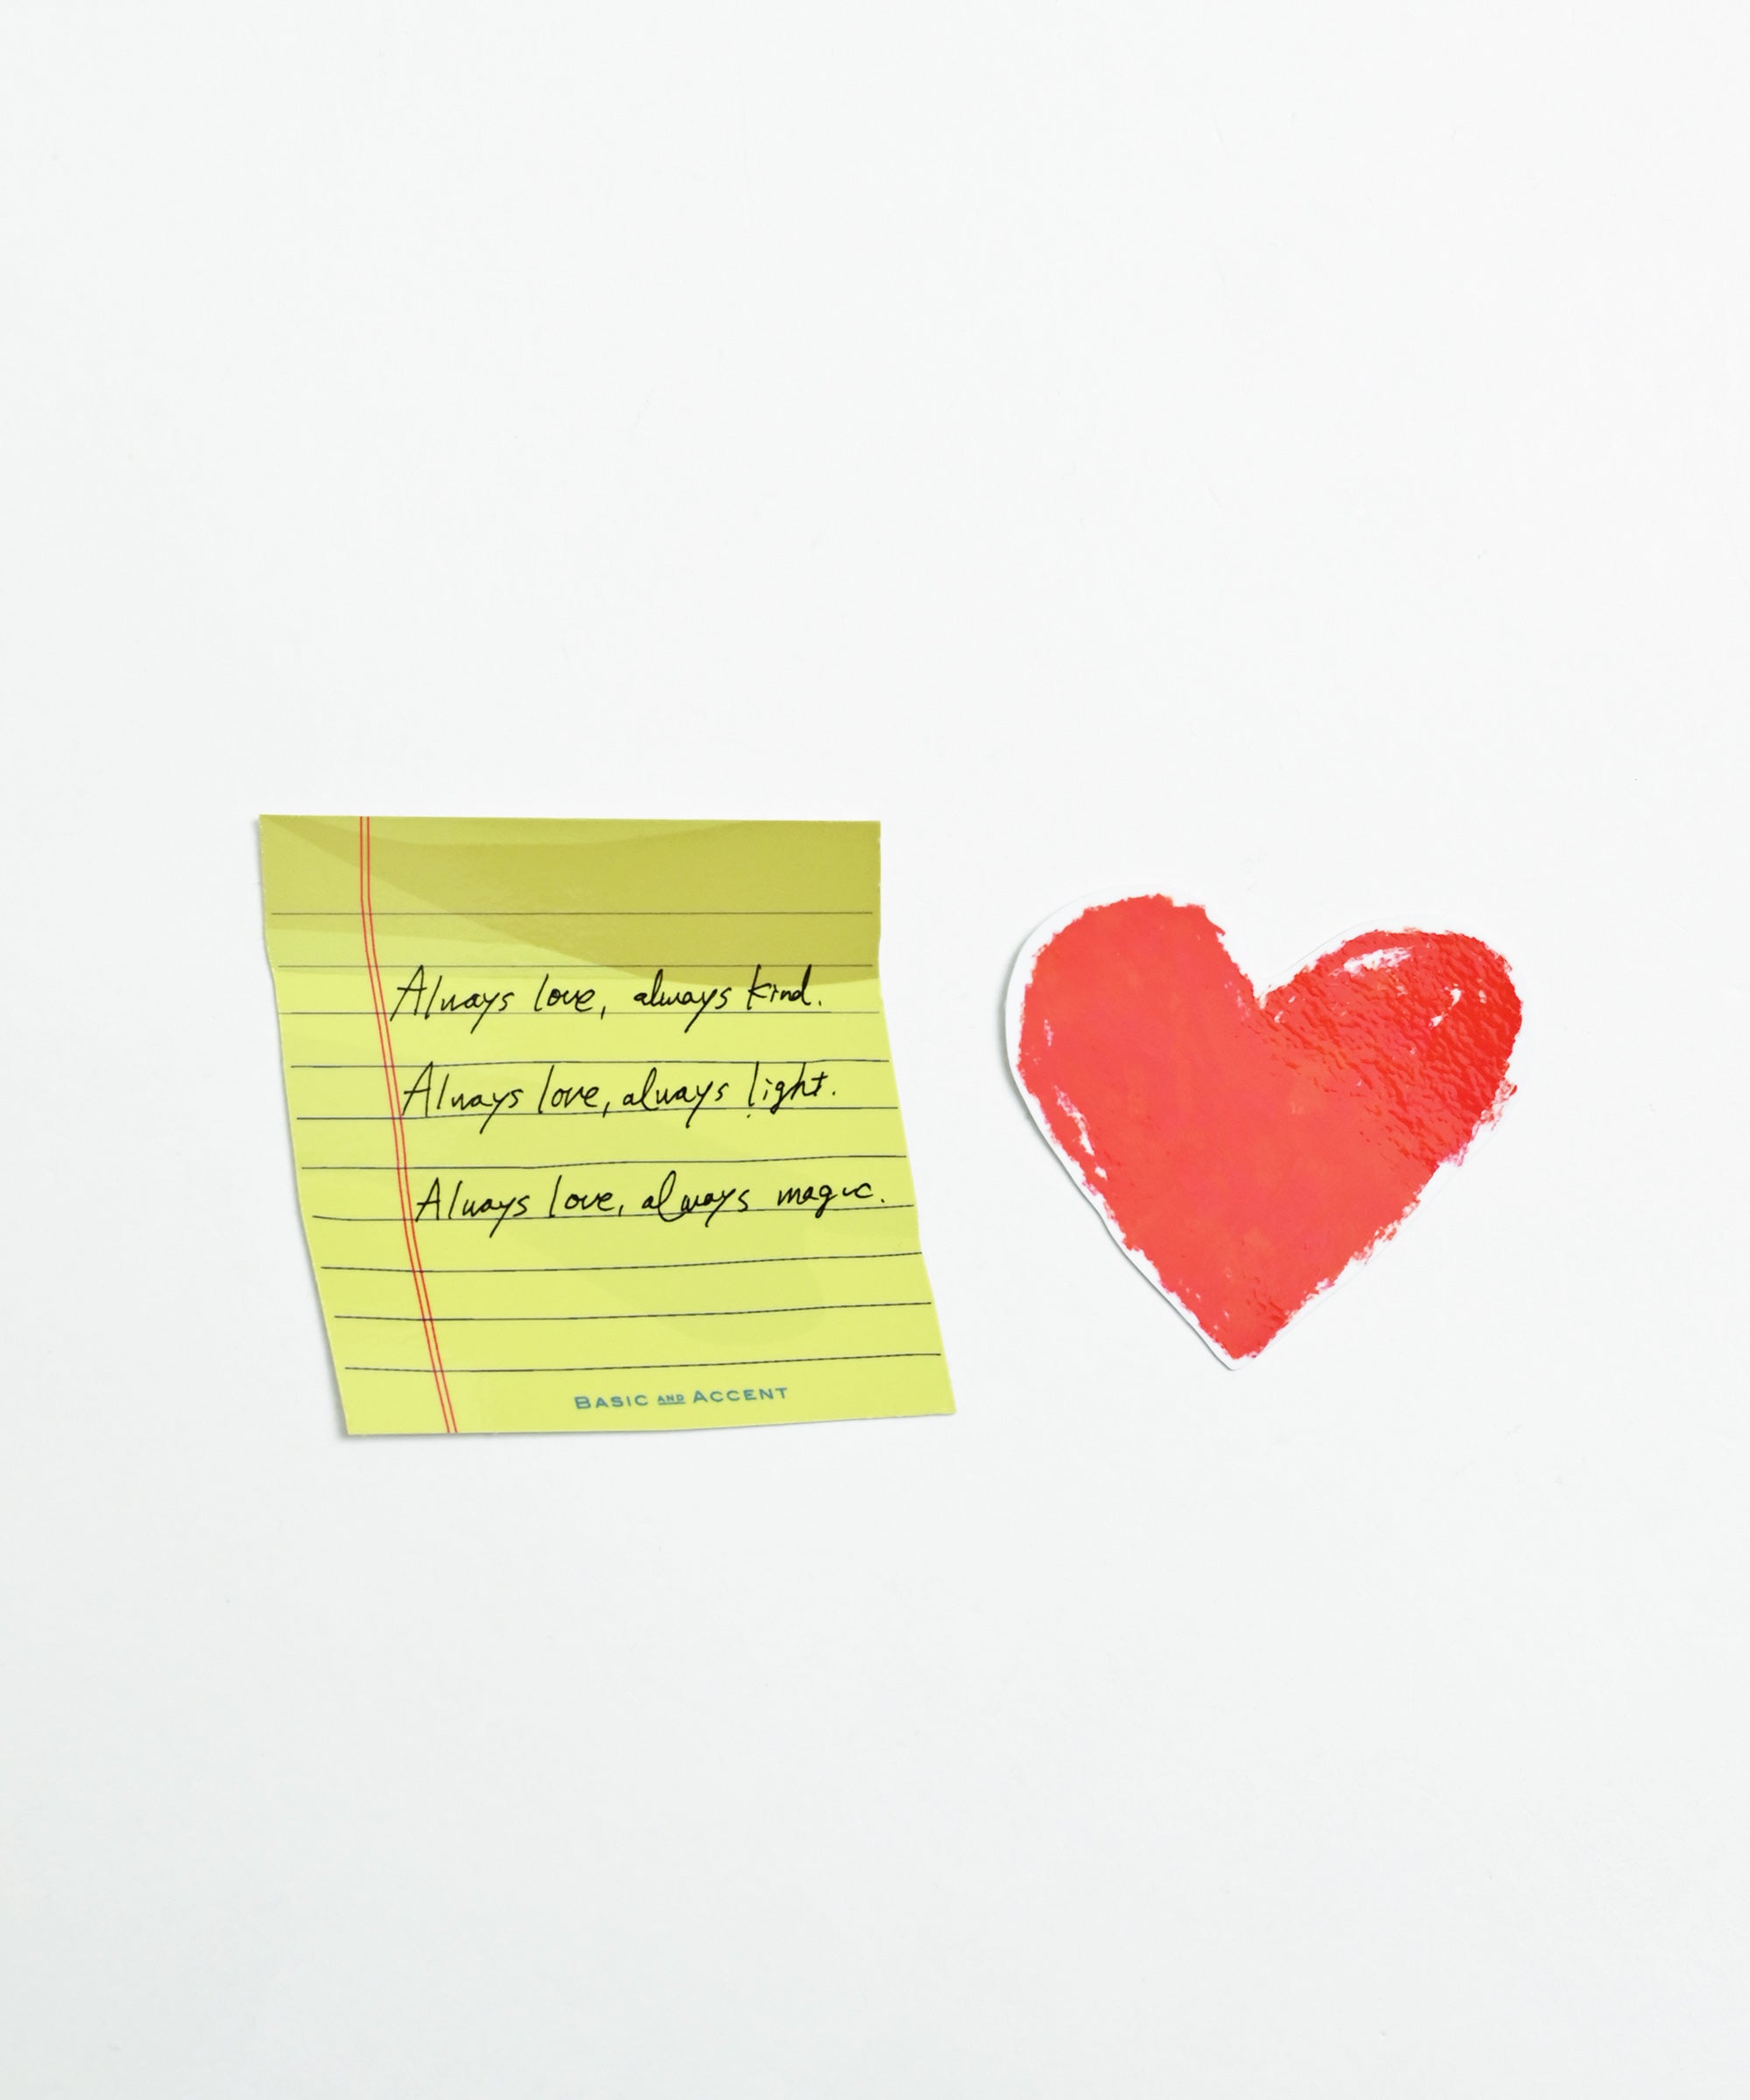 Always love, always kind.
Always love, always light.
Always love, always magic.
BASIC AND ACCENT